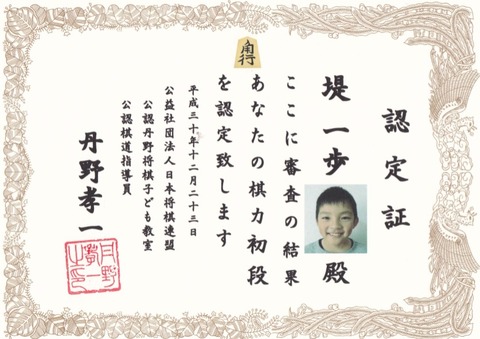 認定証
堤一歩殿
ここに審査の結果
あなたの棋力初段
を認定致します
平成三十年十二月二十三日
公益社団法人日本将棋連盟
公認丹野将棋子ども教室
公認棋道指導員
丹野孝一
角行